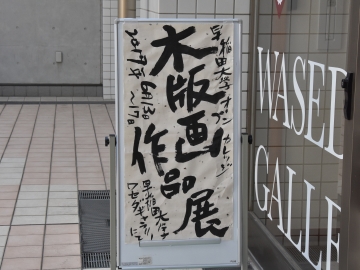 早稲田大学オープンカレッジ
木版画
作品展
2017年 6月13日
～17日
早稲田大学
ワセダギャラリーにて
WASED
GALLE